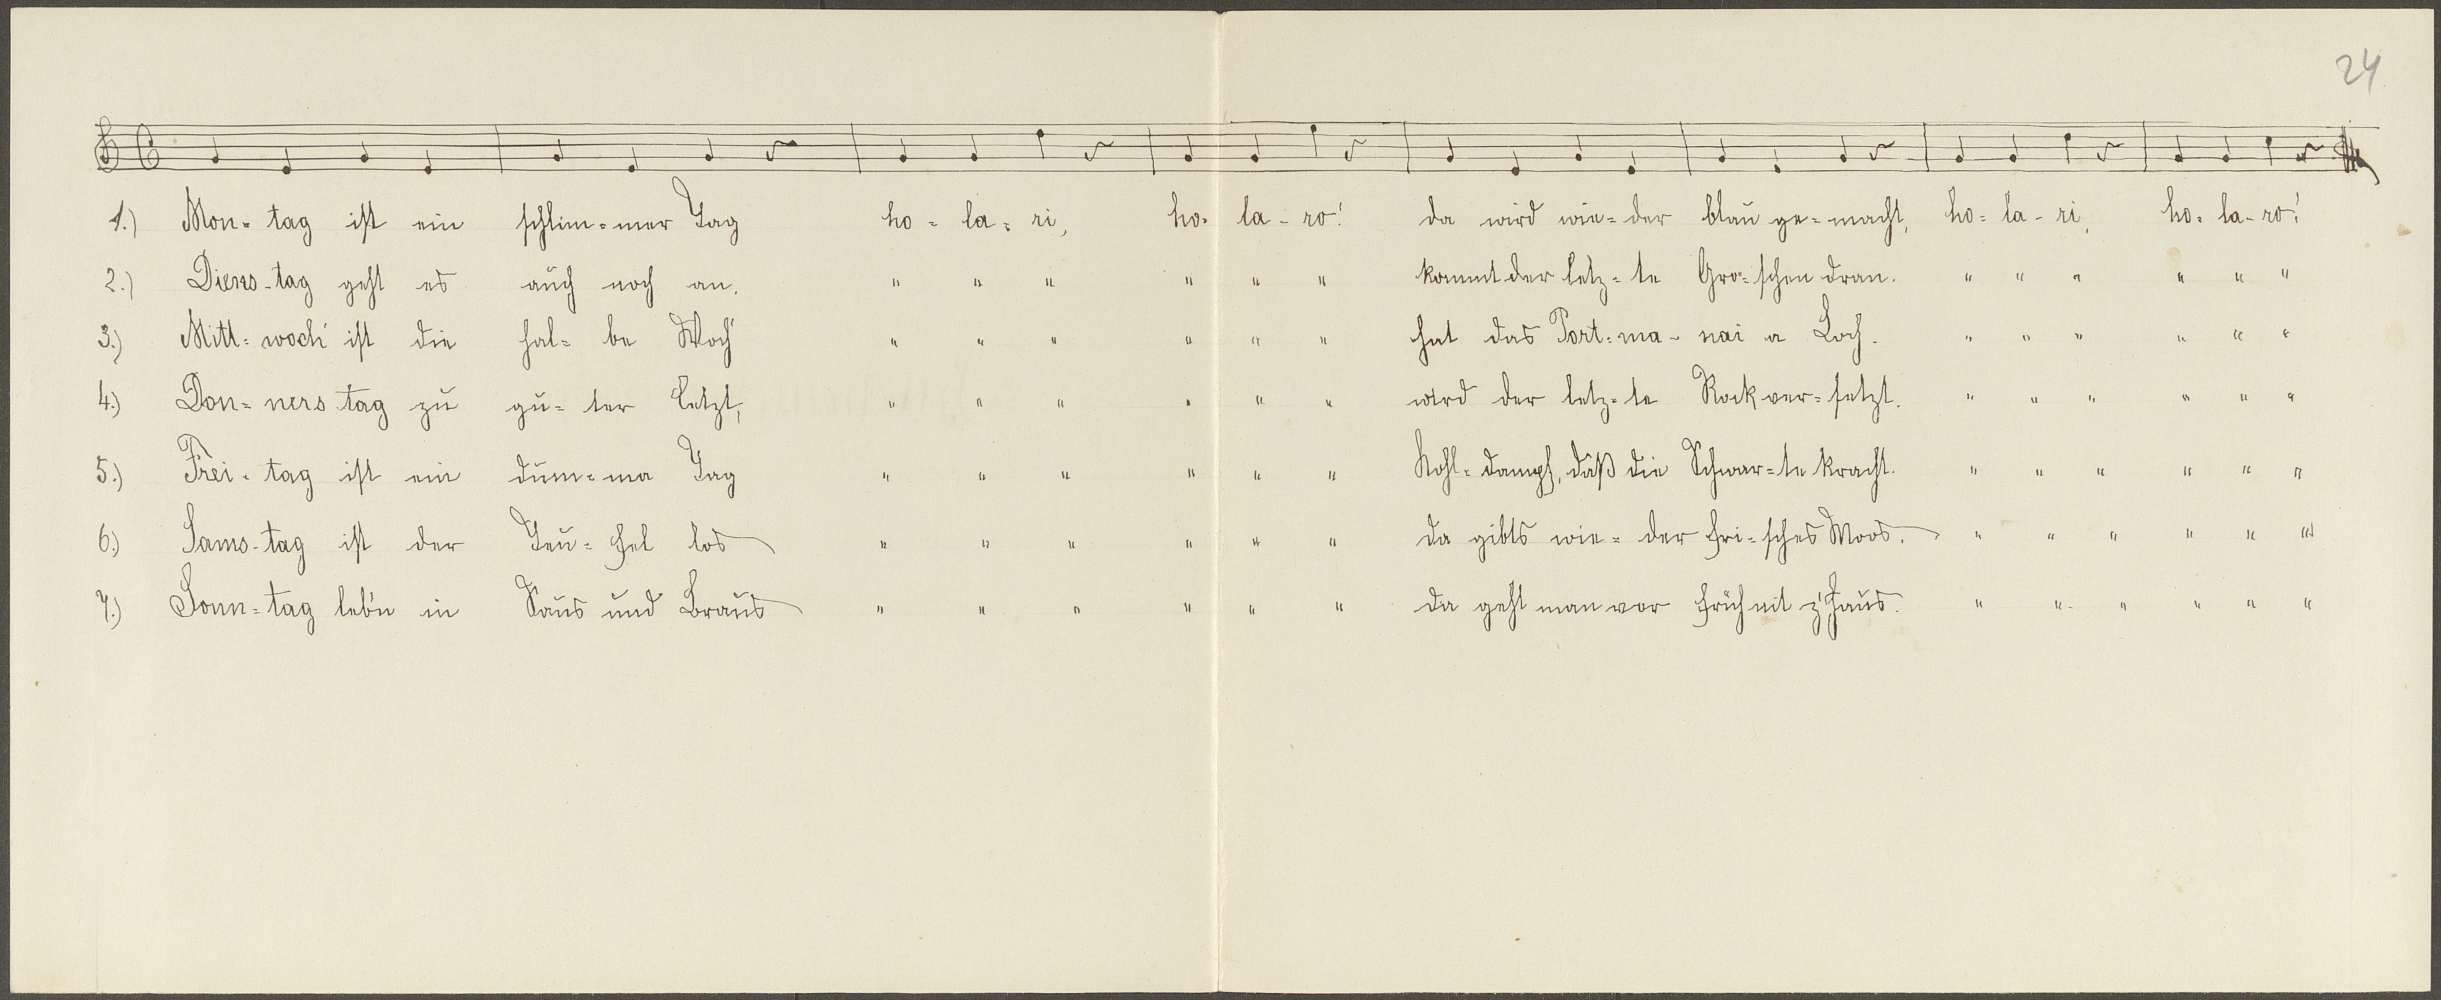 24
1.) Mon- tag ist ein schlim=mer Tag ho- la- ri, ho- la- ro! da wird wie=der blau ge=macht, ho= la- ri, ho= la- ro!
2.) Diens-tag geht es auch noch an. " " " " " " kommt der letz=te Gro=schen dran. " " " " " "
3.) Mitt=woch' ist die hal= be Woch' " " " " " " hat das Port=ma- nai a Loch. " " " " " "
4.) Don= ners tag zu gu= ter Letzt, " " " " " " wird der letz=te Rock ver=setzt. " " " " " "
5.) Frei- tag ist ein dum=ma Tag " " " " " " Kohl=dampf, daß die Schwar=te kracht. " " " " " "
6.) Sams-tag ist der Teu=fel los " " " " " " da gibts wie= der fri=sches Moos. " " " " " "
7.) Sonn=tag leb'n in Saus und Braus " " " " " " da geht man vor früh nit z'Haus. " " " " " "